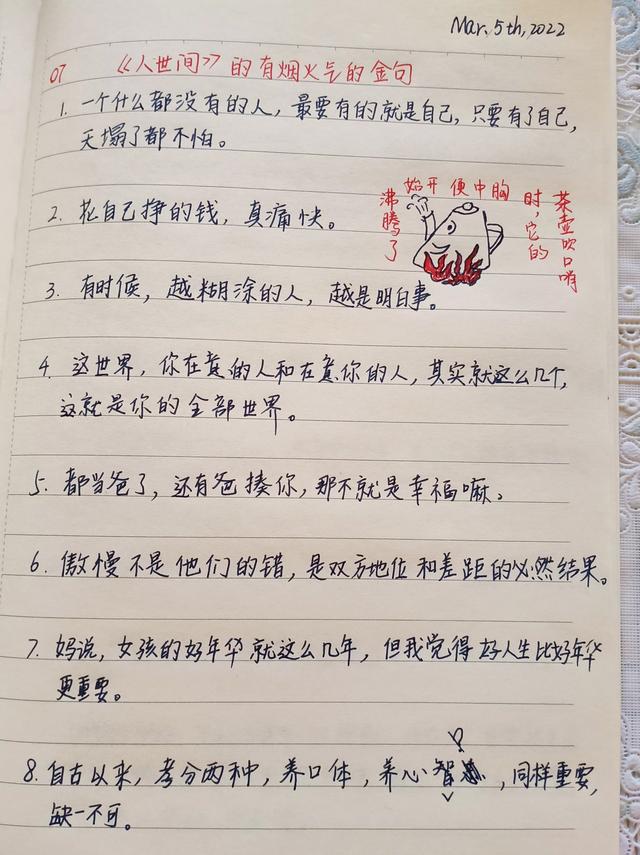 Mar. 5th, 2022
07 《人世间》的有烟火气的金句
1. 一个什么都没有的人，最要有的就是自己，只要有了自己，
天塌了都不怕。
2. 花自己挣的钱，真痛快。
茶壶吹口哨
时，它的
胸中便开始
沸腾了
3. 有时候，越糊涂的人，越是明白事。
4. 这世界，你在意的人和在意你的人，其实就这么几个，
这就是你的全部世界。
5. 都当爸了，还有爸揍你，那不就是幸福嘛、
6. 傲慢不是他们的错，是双方地位和差距的必然结果。
7. 妈说，女孩的好年华就这么几年，但我觉得好人生比好年华
更重要。
8. 自古以来，考分两种，养口体，养心智，同样重要，
缺一不可。